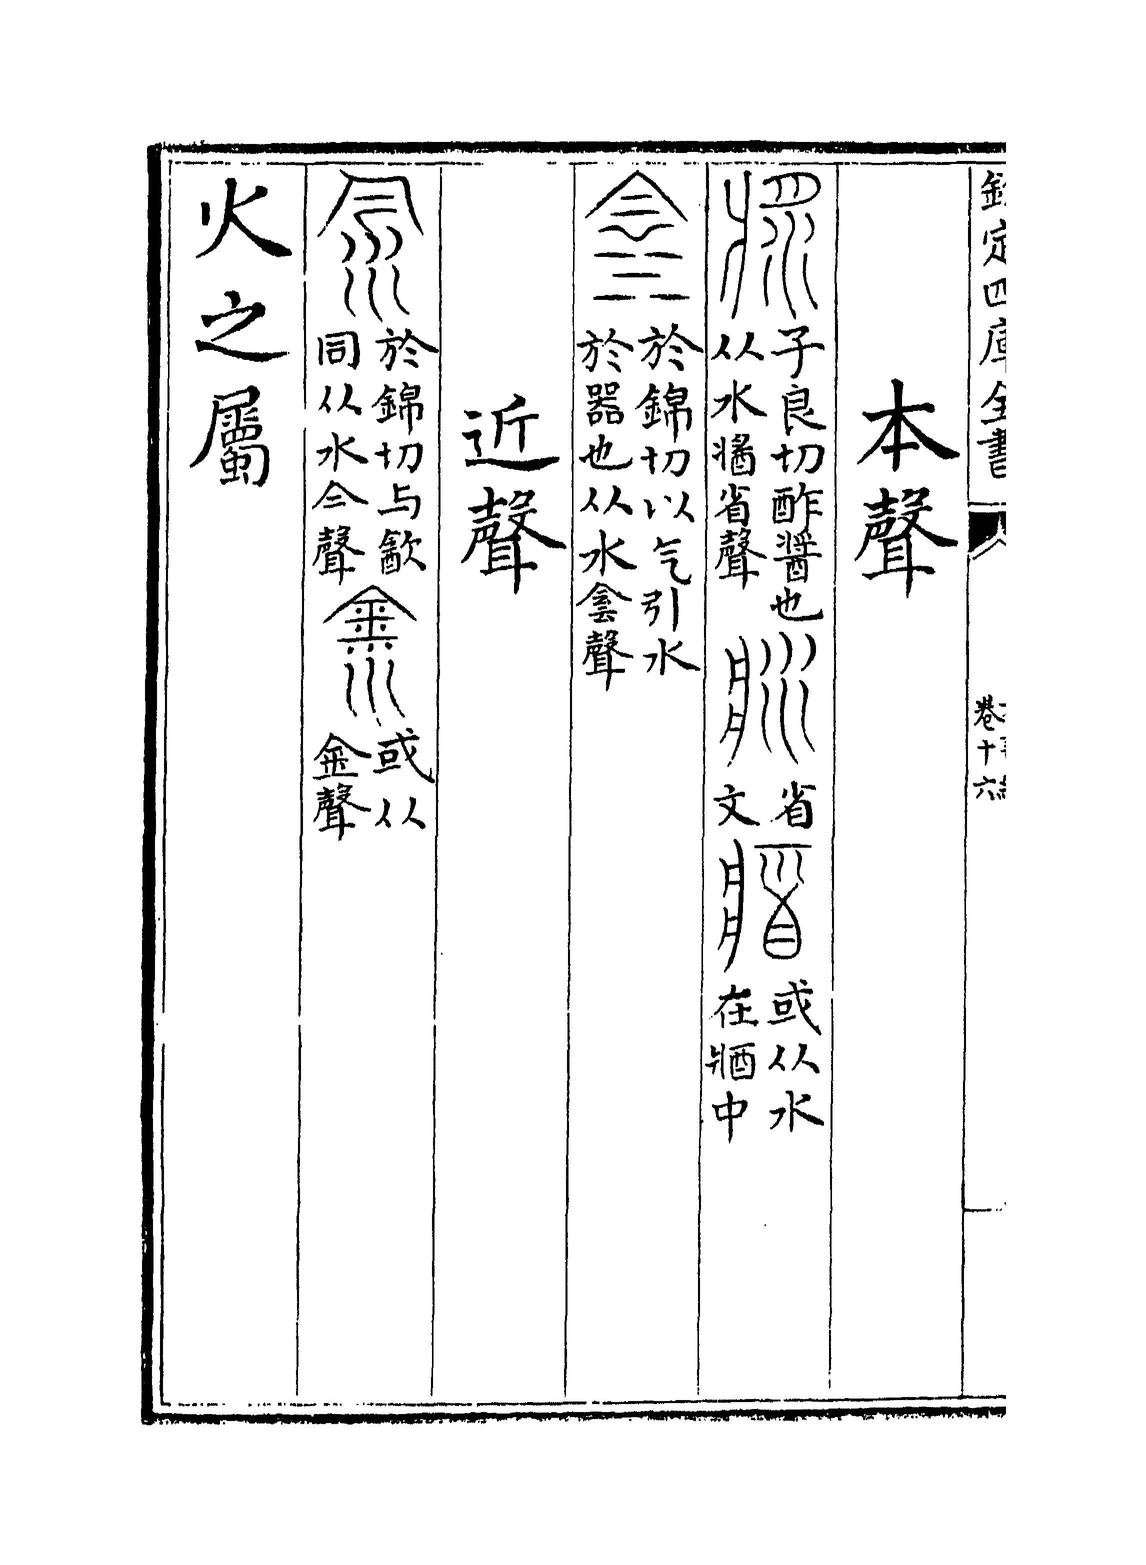 欽定四庫全書
卷十六
本聲
子良切酢醬也
从水 省聲
省
文
或从水
在 中
於錦切以气引水
於器也从水侌聲
近聲
於錦切与㱃
同从水今聲
或从
金聲
火之屬